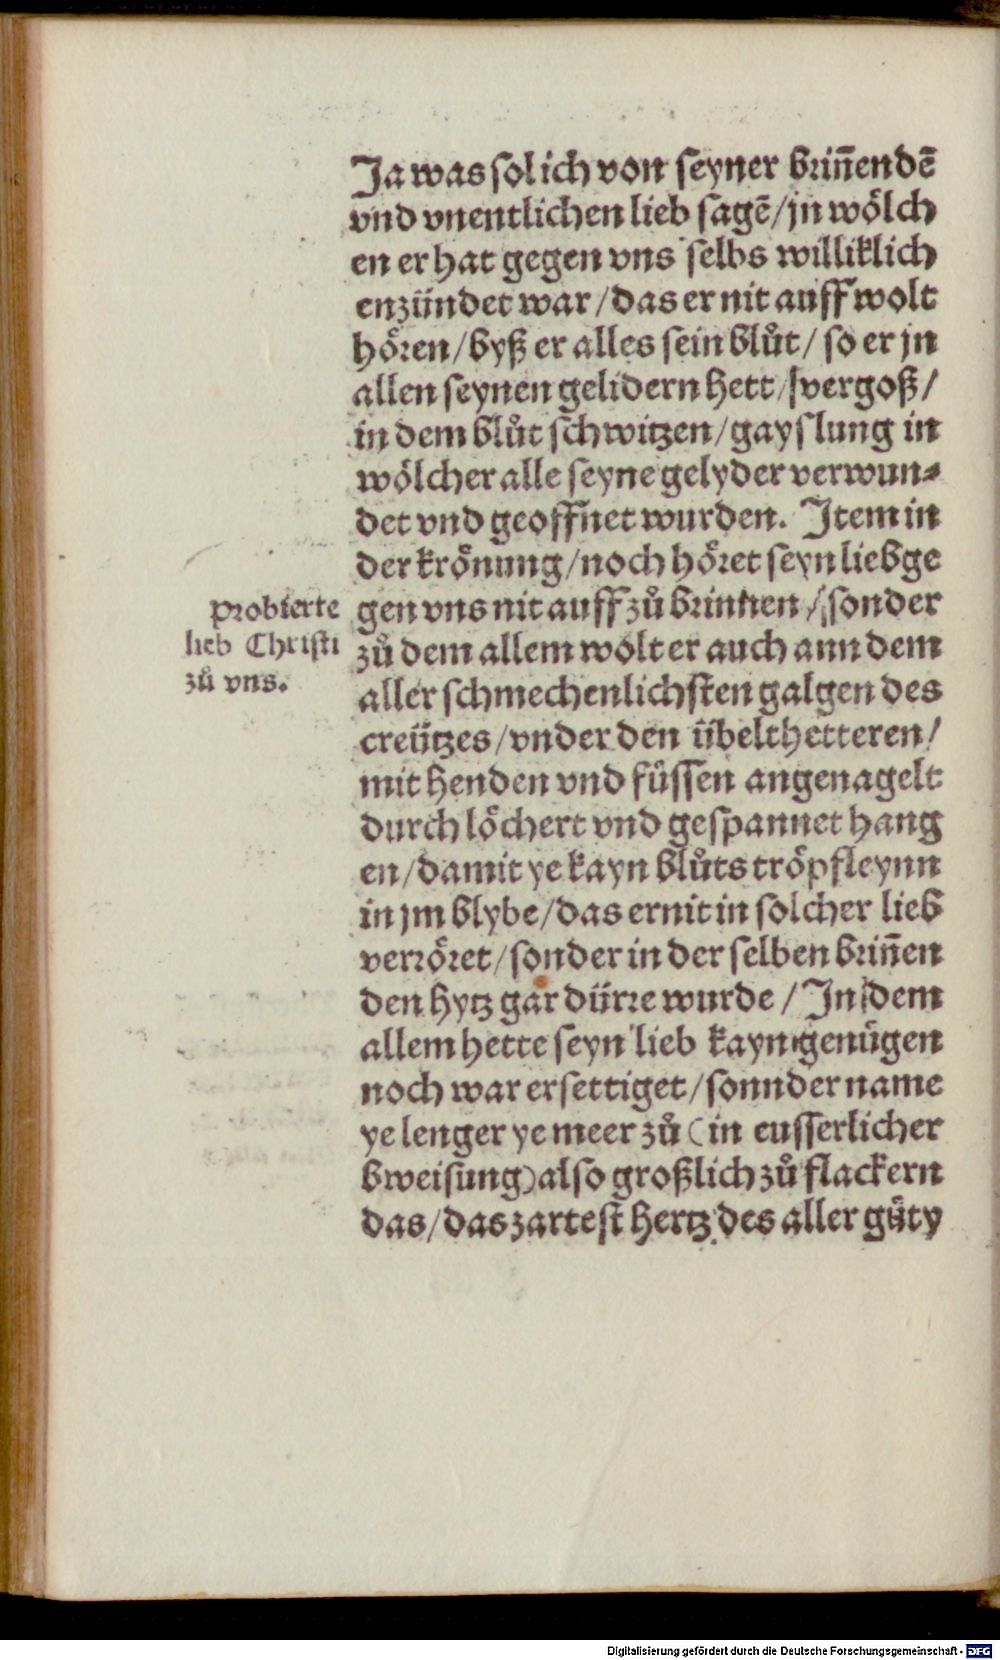 Ja was sol ich von seyner brin̄endē
vnd vnentlichen lieb sagē/jn wölch
en er hat gegen vns selbs williklich
enzündet war/das er nit auff wolt
hören/byß er alles sein blůt/ so er jn
allen seynen gelidern hett/vergoß/
in dem blůt schwitzen/gayslung in
wölcher alle seyne gelyder verwun⸗
det vnd geoffnet wurden. Item in
der krönung/noch höret seyn lieb ge
gen vns nit auff zů brinnen/sonder
zů dem allem wolt er auch ann dem
aller schmechenlichsten galgen des
creützes/vnder den übelthetteren/
mit henden vnd füssen angenagelt
durch löchert vnd gespannet hang
en/damit ye kayn blůts tröpfleynn
in jm blybe/das er nit in solcher lieb
verröret/sonder in der selben brin̄en
den hytz gar dürre wurde/In dem
allem hette seyn lieb kayn genügen
noch war ersettiget/sonnder name
ye lenger ye meer zů (in eusserlicher
bweisung) also großlich zů flackern
das/das zartest hertz des aller güty
probierte
lieb Christi
zů vns.
Digitalisierung gefördert durch die Deutsche Forschungsgemeinschaft - DFG